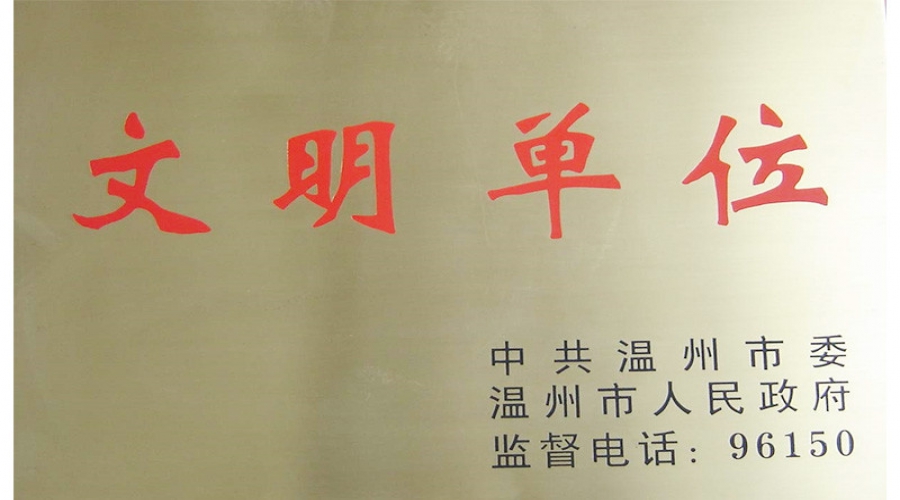 文明单位
中共温州市委
温州市人民政府
监督电话：96150